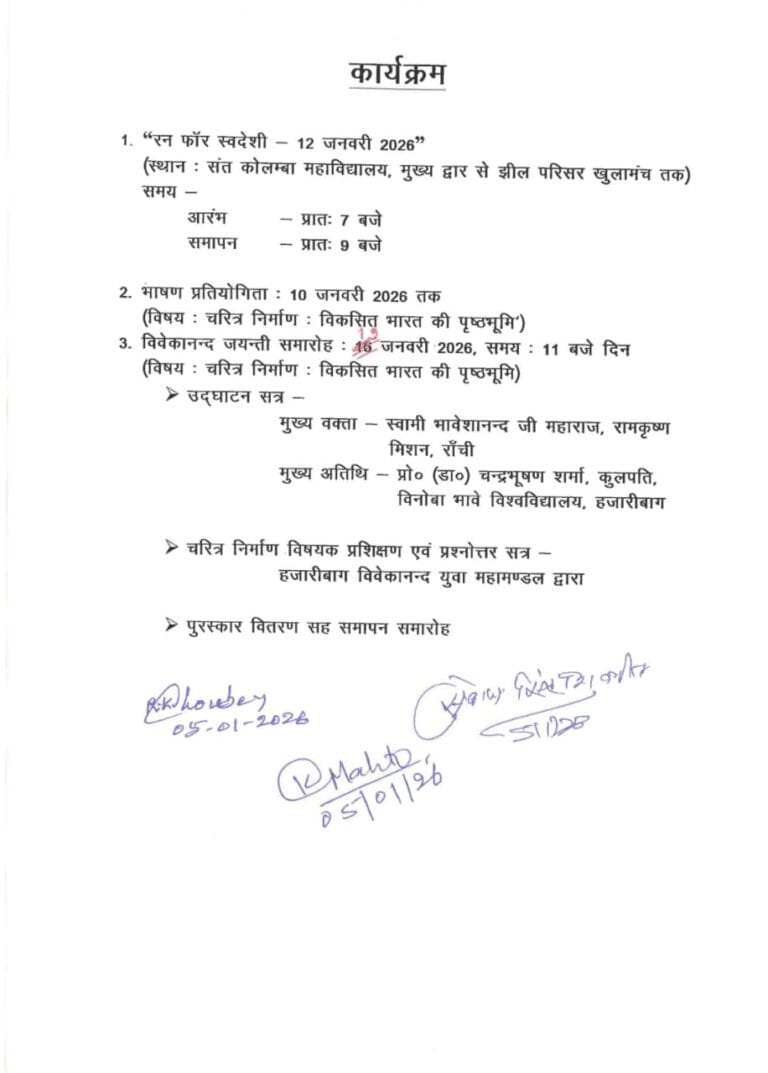 कार्यक्रम
1. “रन फॉर स्वदेशी – 12 जनवरी 2026”
(स्थान : संत कोलम्बा महाविद्यालय, मुख्य द्वार से झील परिसर खुलामंच तक)
समय –
आरंभ – प्रातः 7 बजे
समापन – प्रातः 9 बजे
2. भाषण प्रतियोगिता : 10 जनवरी 2026 तक
(विषय : चरित्र निर्माण : विकसित भारत की पृष्ठभूमि’)
3. विवेकानन्द जयन्ती समारोह : जनवरी 2026, समय : 11 बजे दिन
(विषय : चरित्र निर्माण : विकसित भारत की पृष्ठभूमि)
➢ उद्घाटन सत्र –
मुख्य वक्ता – स्वामी भावेशानन्द जी महाराज, रामकृष्ण
मिशन, राँची
मुख्य अतिथि – प्रो० (डा०) चन्द्रभूषण शर्मा, कुलपति,
विनोबा भावे विश्वविद्यालय, हजारीबाग
➢ चरित्र निर्माण विषयक प्रशिक्षण एवं प्रश्नोत्तर सत्र –
हजारीबाग विवेकानन्द युवा महामण्डल द्वारा
➢ पुरस्कार वितरण सह समापन समारोह
05-01-2026
K Mahto
05/01/26